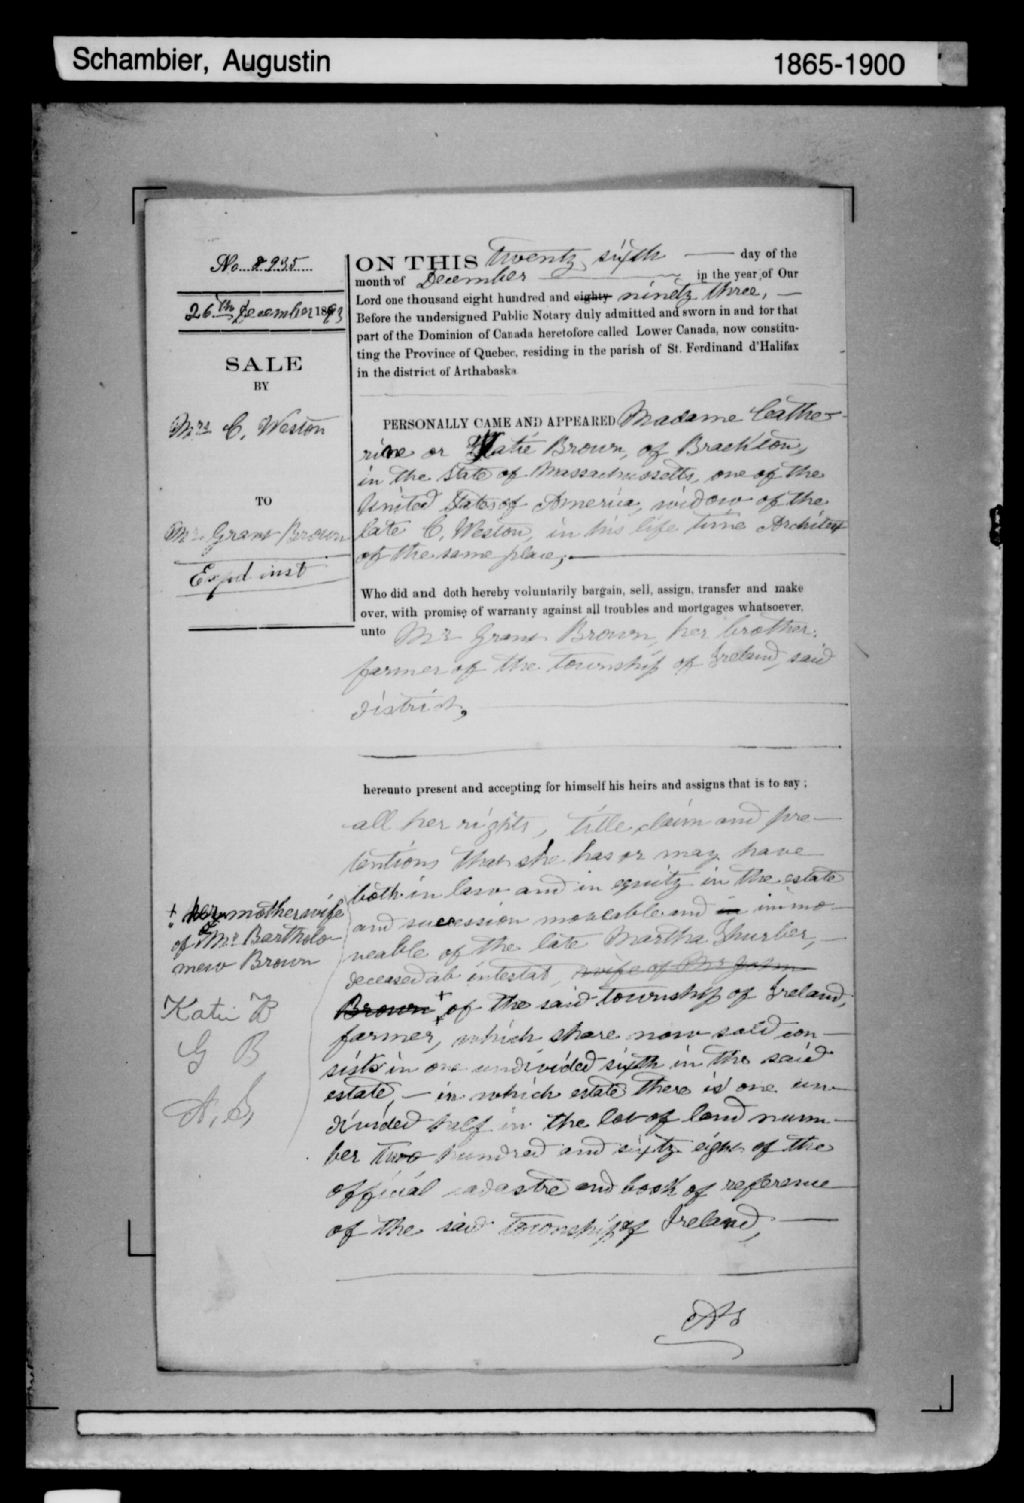 Schambier, Augustin
1865-1900
No 8935
26th December 1893
SALE
BY
Mrs C. Weston
TO
Mr Grant Brown
Expd inst
ON THIS twenty sixth day of the
month of December in the year of Our
Lord one thousand eight hundred and eighty ninety three,
Before the undersigned Public Notary duly admitted and sworn in and for that
part of the Dominion of Canada heretofore called Lower Canada, now constitu-
ting the Province of Quebec, residing in the parish of St. Ferdinand d'Halifax
in the district of Arthabaska
PERSONALLY CAME AND APPEARED Madame Cathe-
rine or Katie Brown, of Brackton,
in the State of Massachussetts, one of the
United States of America, widow of the
late C. Weston, in his life time Architect
of the same place,
Who did and doth hereby voluntarily bargain, sell, assign, transfer and make
over, with promise of warranty against all troubles and mortgages whatsoever,
unto Mr Grant Brown, her brother,
farmer of the township of Ireland, said
district,
hereunto present and accepting for himself his heirs and assigns that is to say ;
all her rights, title, claim and pre-
tentions that she has or may have
both in law and in equity in the estate
and sucession moveable and in immo-
veable of the late Martha Thurber,
deceased ab intestat, wife of Mr John
Brown + of the said township of Ireland,
farmer, which share now sold con-
sists in one undivided sixth in the said
estate, - in which estate there is one un-
divided half in the lot of land num-
ber two hundred and sixty eight of the
official cadastre and book of reference
of the said township of Ireland,
+ her mother wife
of Mr Bartholo-
mew Brown
Katie B
G B
A. S.
AS